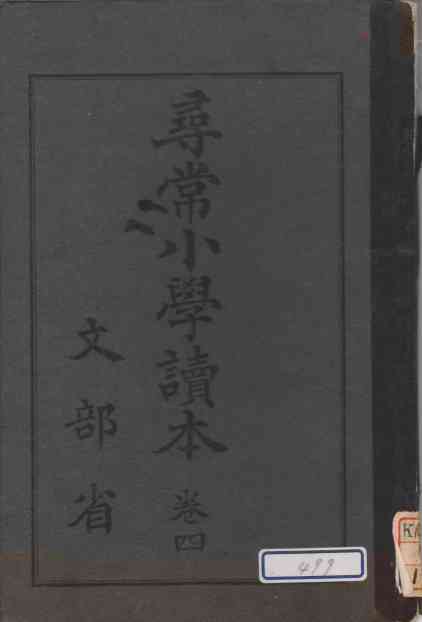 尋常小學讀本 卷四
文部省
499